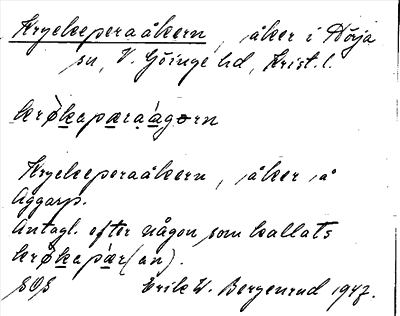 Kryckeperaåkern, åker i Nörja
sn, V. Göinge hd, Krist. l.
krø̀kapæraágɔrn
Kryckeperaåkern, åker på
Aggarp.
Antagl. efter någon som kallats
krø̀kapǽr(an).
SOS Erik W. Bergenrud 1947.